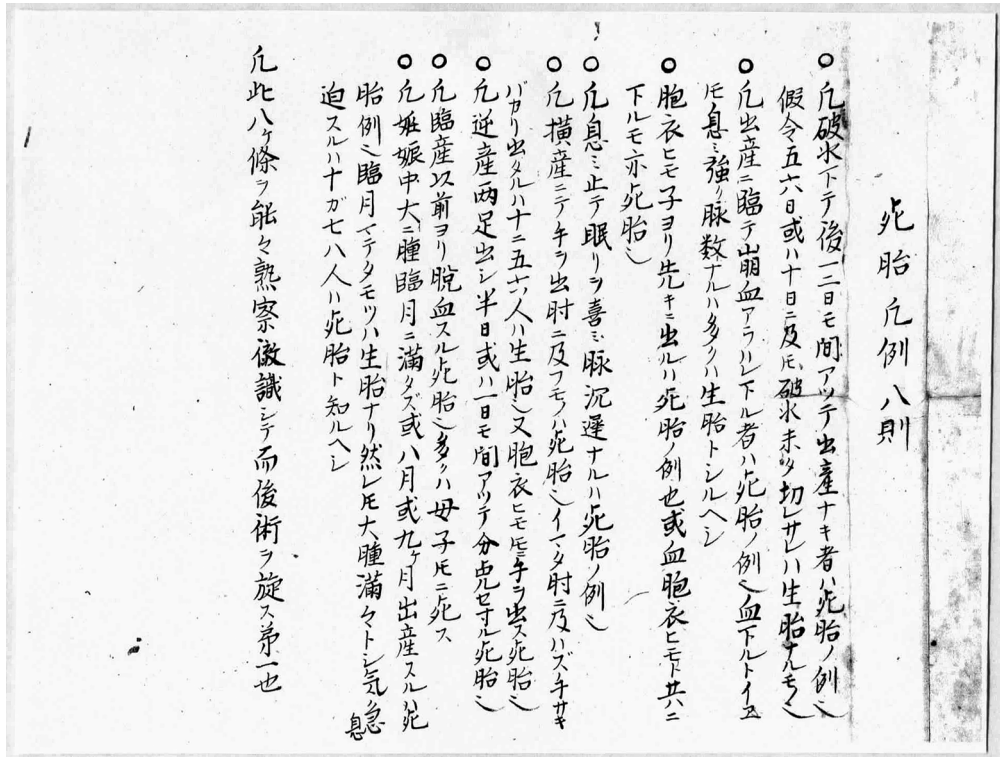 死胎凡例八則
○凡破水下テ後一二日モ間アツテ出産ナキ者ハ死胎ノ例也
假令五六日或ハ十日ニ及ヒ破水未タ切レサレハ生胎ナルモノ也
○凡出産ニ臨テ崩血アラハレ下ル者ハ死胎ノ例也血下ルトイヱ
𪜈息ミ強ク脉数ナルハ多クハ生胎トシルヘシ
○胞衣ヒモ子ヨリ先キニ出ルハ死胎ノ例也或血胞衣ヒモト共ニ
下ルモ亦死胎也
○凡息ミ止テ眠リヲ喜ミ脉沉遅ナルハ死胎ノ例也
○凡横産ニテ手ヲ出肘ニ及フモノハ死胎也イマタ肘ニ及ハズ手サキ
バカリ出タルハ十ニ五六人ハ生胎也又胞衣ヒモモ手ヲ出ス死胎也
○凡逆産両足出シ半日或ハ一日モ間アツテ分娩セサル死胎也
○凡臨産以前ヨリ脱血スル死胎也多クハ母子𪜈ニ死ス
○凡妊娠中大ニ腫臨月ニ満タズ或八月或九ヶ月出産スルハ死
胎例也臨月マテタモツハ生胎ナリ然レ𪜈大腫満々トシ気急息
迫スルハ十ガ七八人ハ死胎ト知ルヘシ
凡此八ヶ條ヲ能々熟察徴識シテ而後術ヲ旋ス第一也